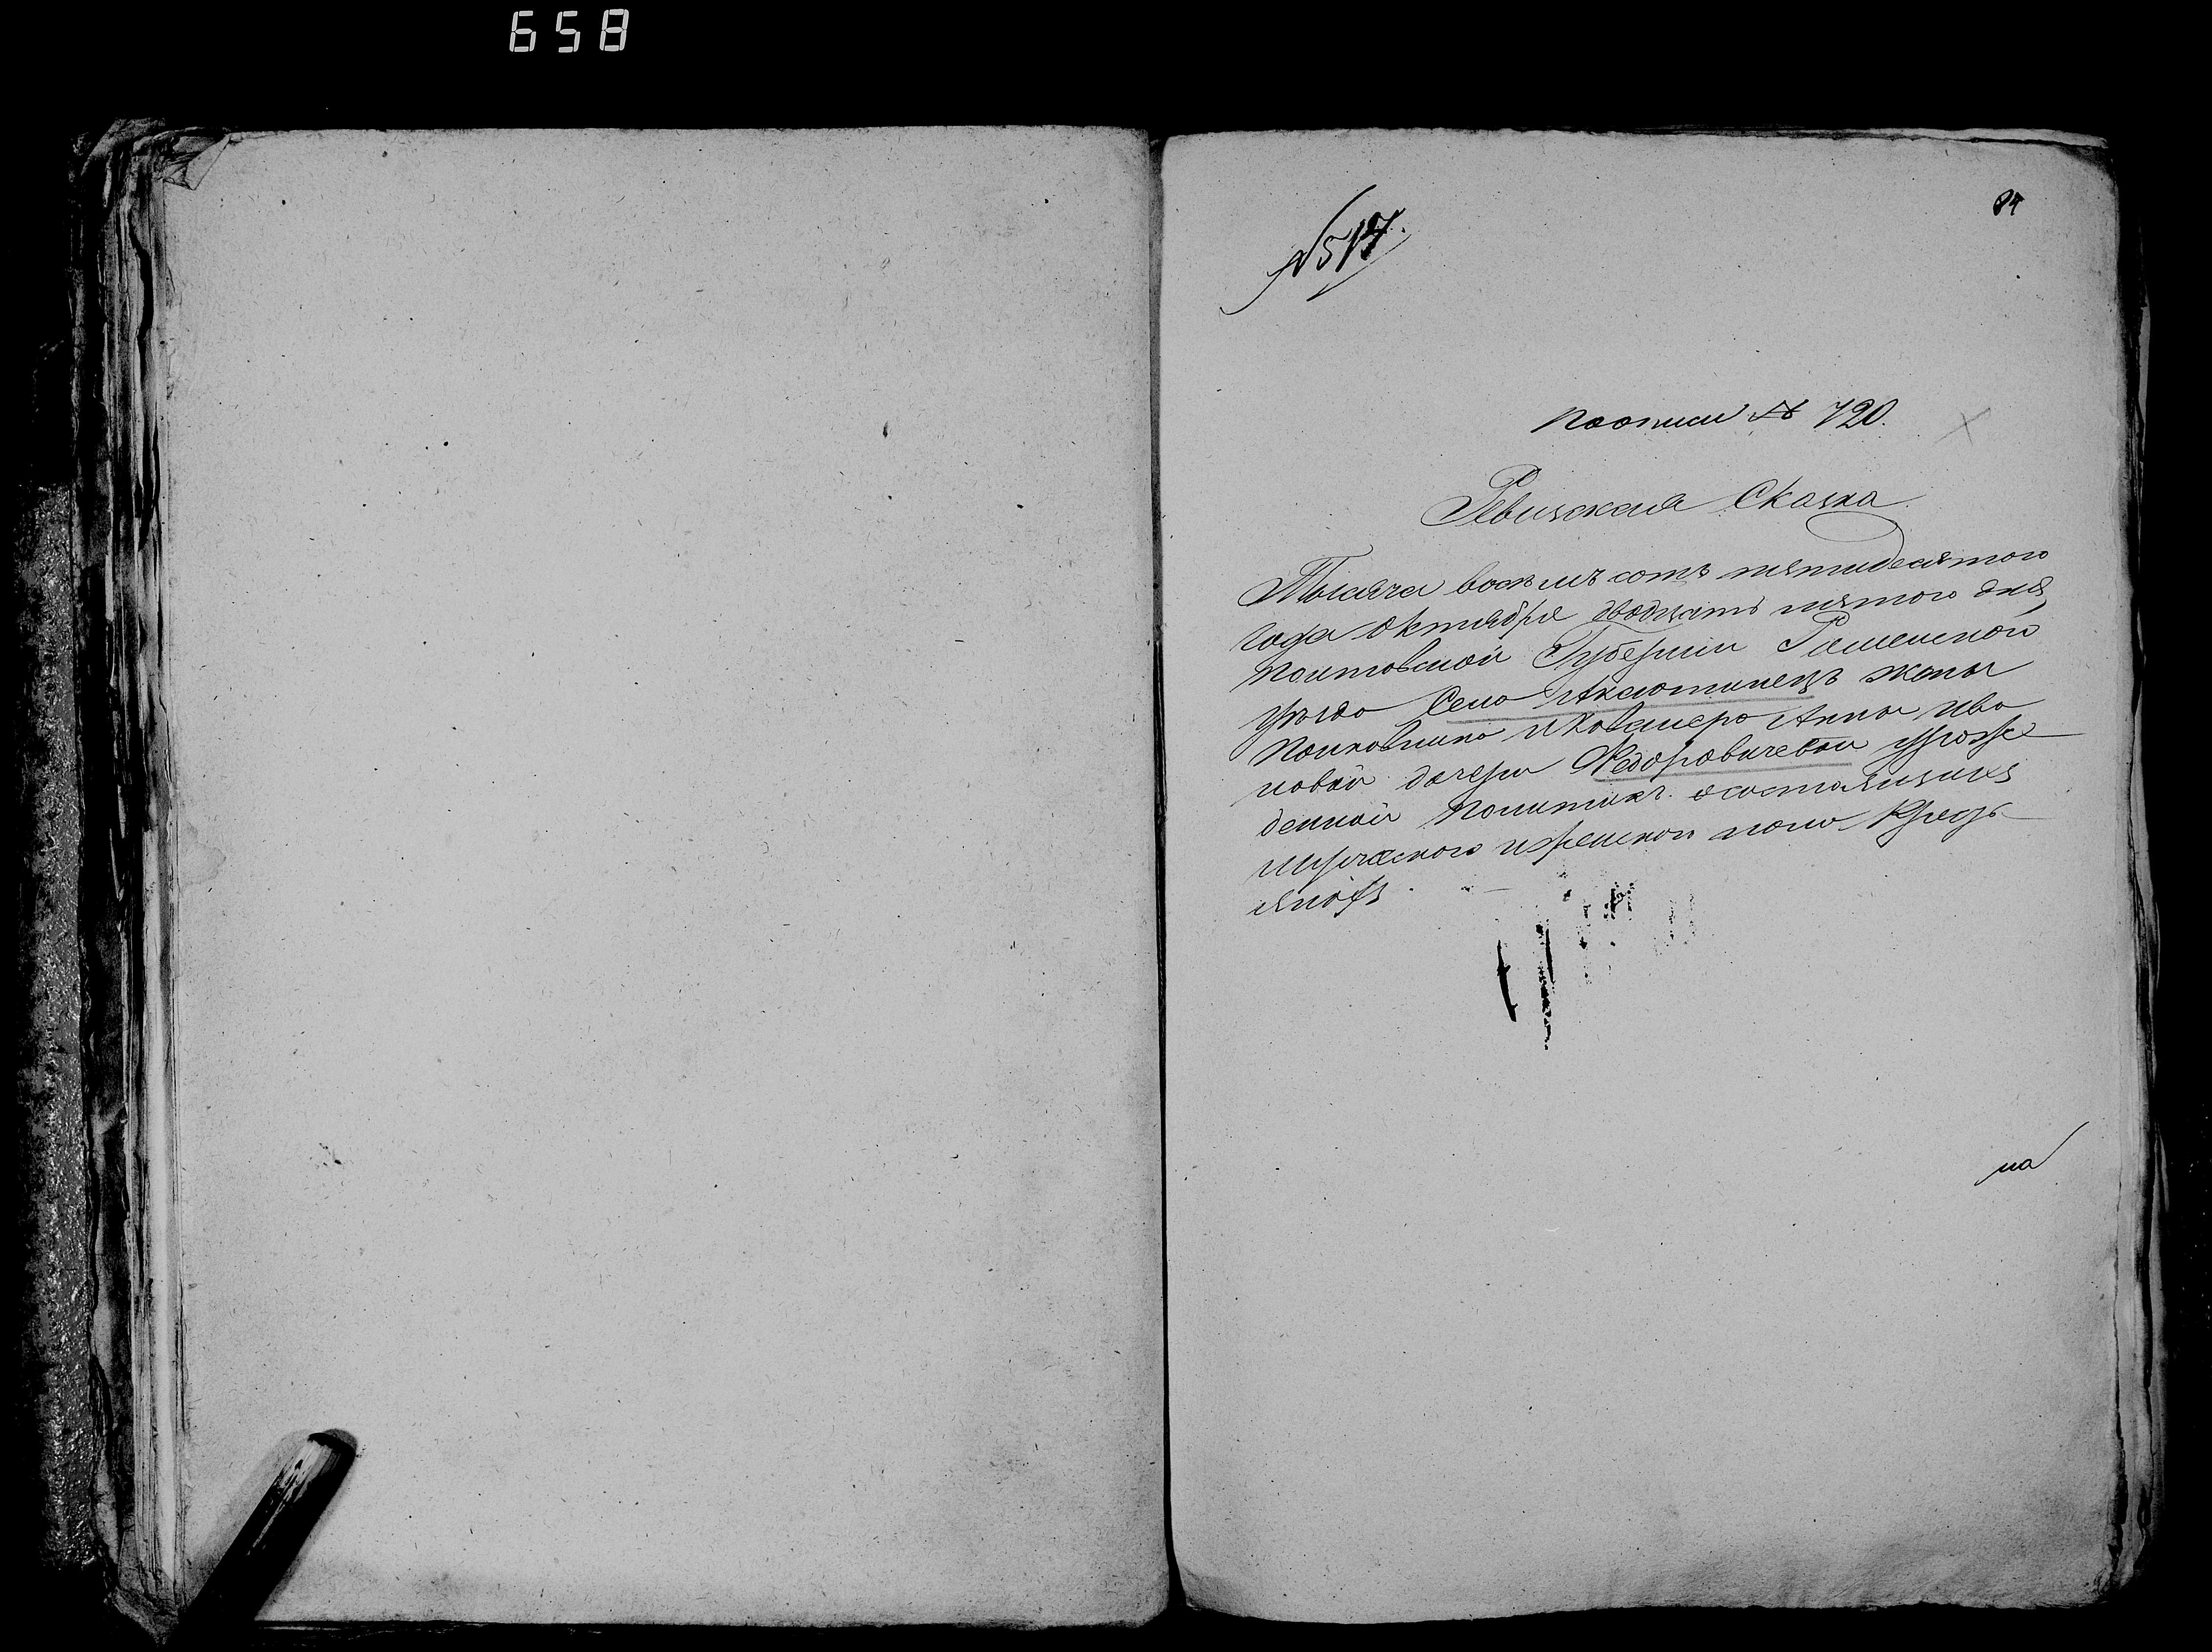 658
84
№ 517.
по описи № 720.
Ревизская Сказка
Тысяча восемъ сотъ пятидесятого
года Октября двадцать пятого дня,
Полтавской Губернии Роменской
уезда Село Аксютинецъ жены
Полковника и Кавалера Анны Ива
новой дочери Федоровичевой урожа
денной Политикъ осостоящихъ
мужеского и женского пола Кресть
янахъ
на